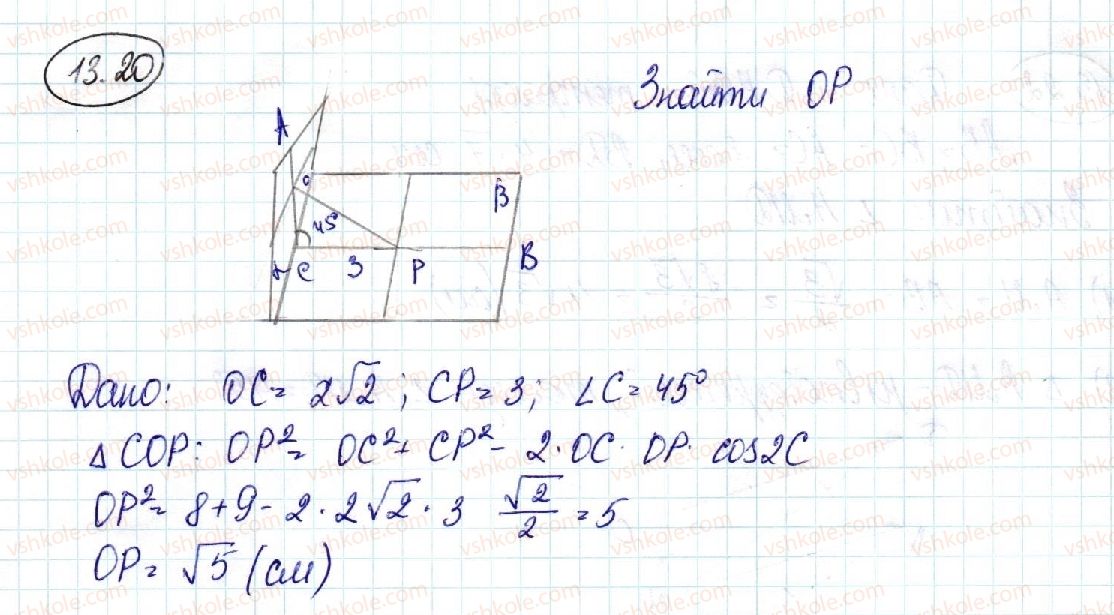 13.20
Знайти OP
A
O
β
45°
B
α C 3 P
Дано: OC = 2√2 ; CP = 3; ∠C = 45°
△COP: OP² = OC² + CP² - 2 · OC · DP · cos2C
OP² = 8 + 9 - 2 · 2√2 · 3 √2/2 = 5
OP = √5 (см)